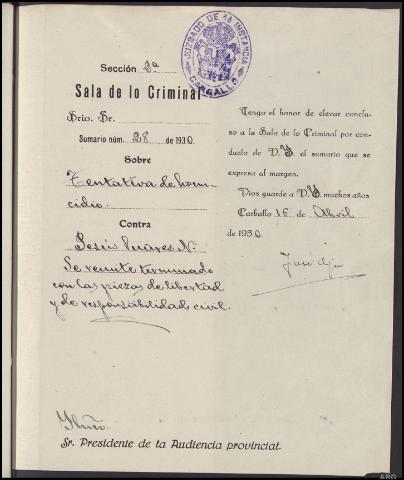 JUZGADO DE 1ª INSTANCIA
CARBALLO
Sección 2ª
Sala de lo Criminal
Srio. Sr.
Sumario núm. 28 de 1930
Sobre
Tentativa de homi-
cidio.
Contra
Jesús Suárez N.
Se remite terminado
con las piezas de libertad
y de responsabilidad civil.
Tengo el honor de elevar conclu-
so a la Sala de lo Criminal por con-
ducto de V.I. el sumario que se
expresa al margen.
Dios guarde a V.I. muchos años
Carballo 16 de Abril
de 1930
José
Iltmo.
Sr. Presidente de la Audiencia provincial.
ARG